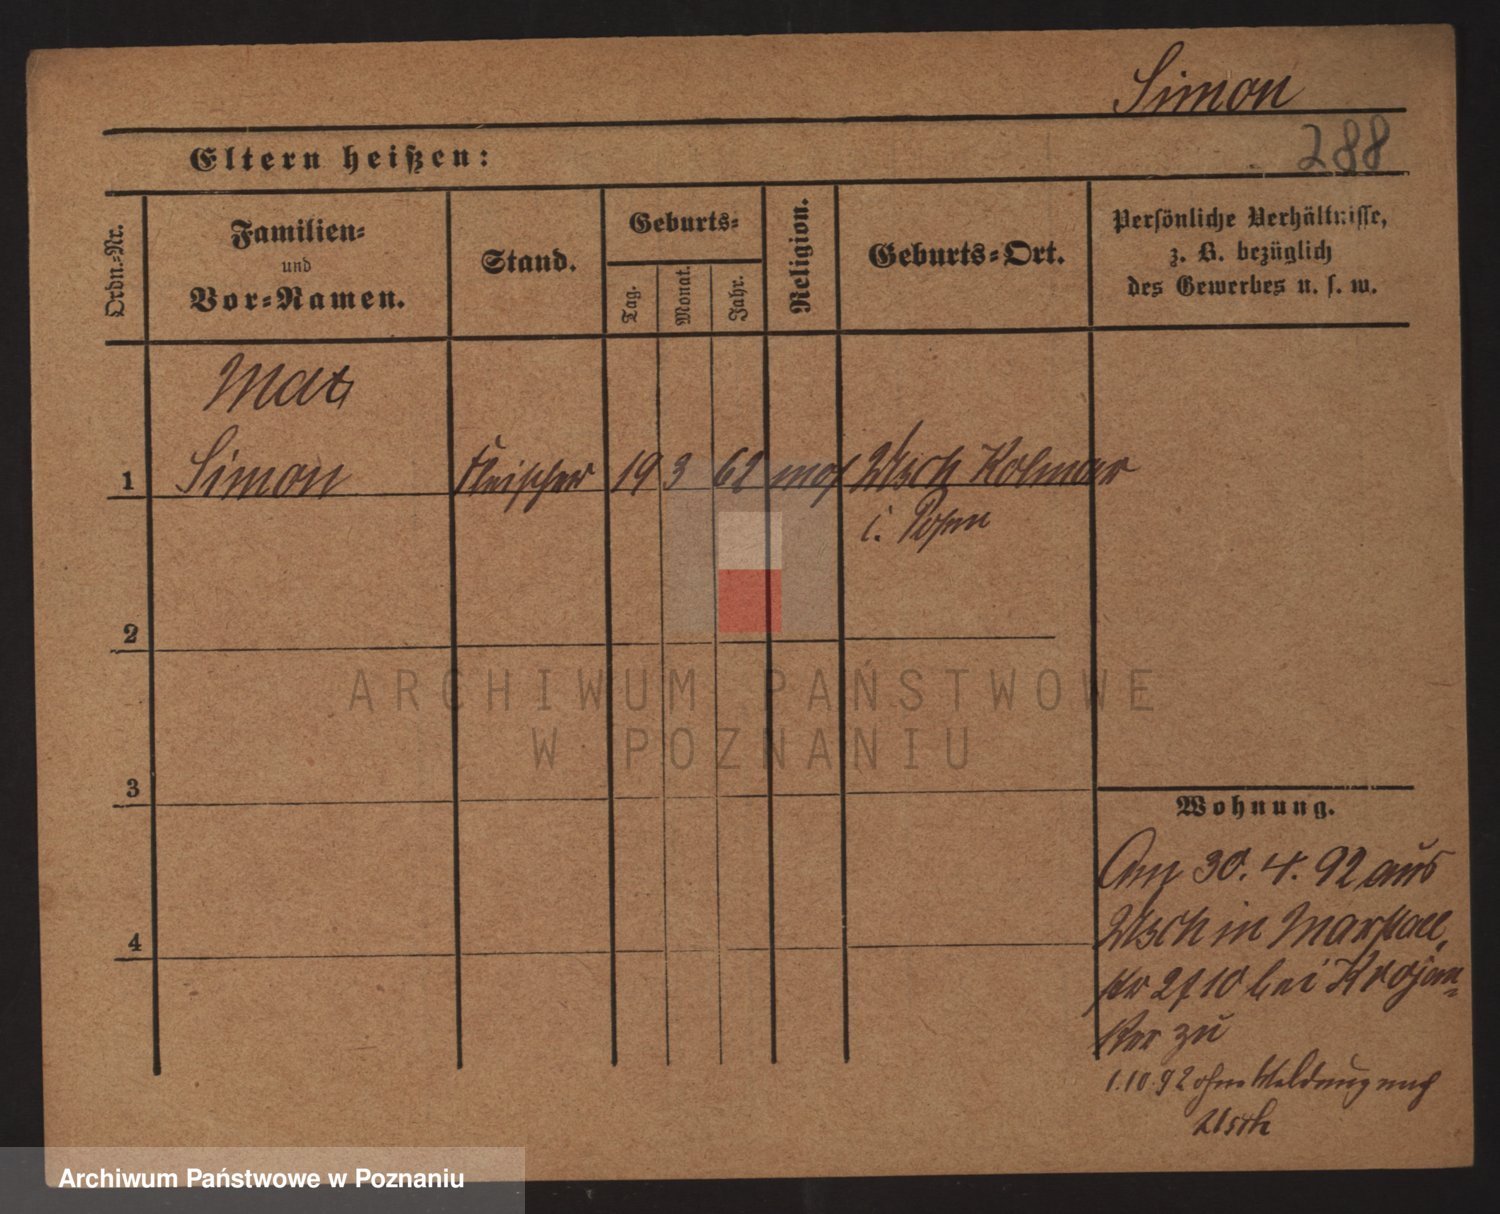 Simon
288
Eltern heißen:
Ordn.-Nr.
Familien-
und
Vor-Namen.
Stand.
Geburts-
Tag.
Monat.
Jahr.
Religion.
Geburts-Ort.
Persönliche Verhältnisse,
z. B. bezüglich
des Gewerbes u. s. w.
Max
1 Simon Fleischer 19 3 62 mos Usch Kolmar
i. Posen
2
3
4
Wohnung.
Am 30.4.92 aus
Usch in
bei Krojan-
ker zu
1.10.92 ohne Meldung nach
Usch
ARCHIWUM PAŃSTWOWE
W POZNANIU
Archiwum Państwowe w Poznaniu